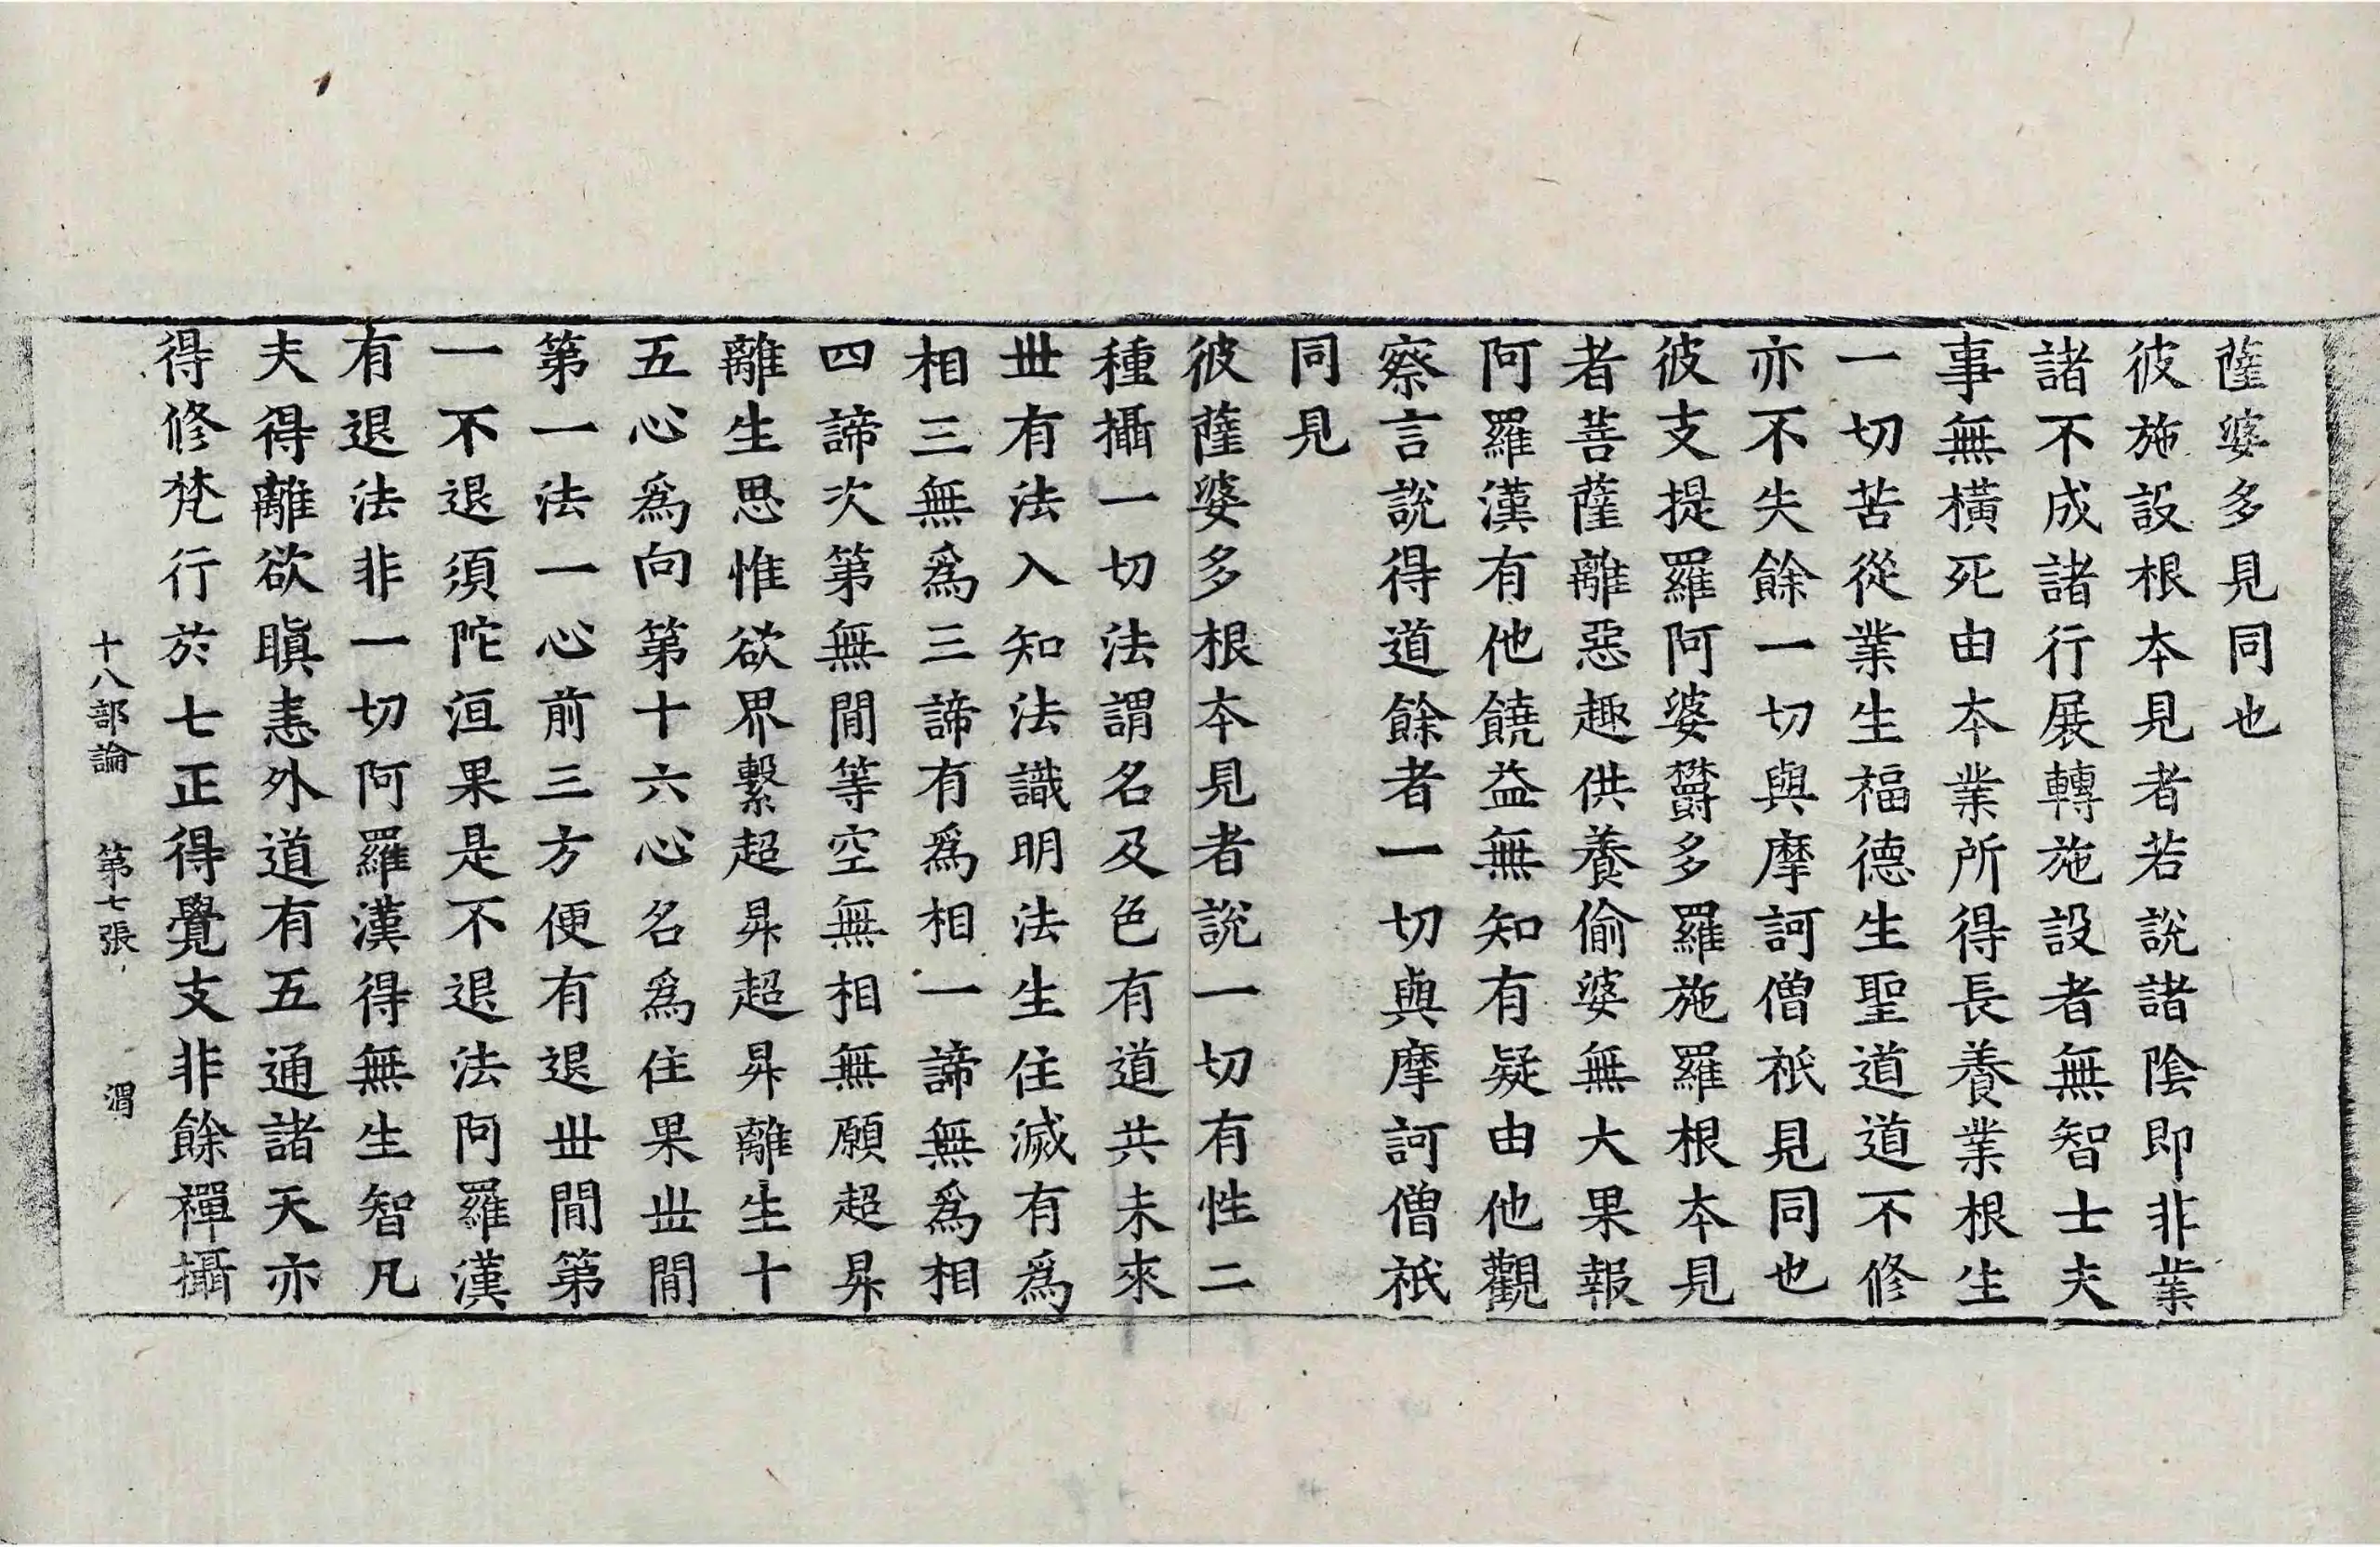 薩婆多見同也
彼施設根本見者若說諸陰即非業
諸不成諸行展轉施設者無智士夫
事無橫死由本業所得長養業根生
一切苦從業生福德生聖道道不修
亦不失餘一切與摩訶僧祇見同也
彼支提羅阿婆欝多羅施羅根本見
者菩薩離惡趣供養偷婆無大果報
阿羅漢有他饒益無知有疑由他觀
察言說得道餘者一切與摩訶僧祇
同見
彼薩婆多根本見者說一切有性二
種攝一切法謂名及色有道共未來
丗有法入知法識明法生住滅有為
相三無為三諦有為相一諦無為相
四諦次第無間等空無相無願超昇
離生思惟欲界繫超昇超昇離生十
五心為向第十六心名為住果丗間
第一法一心前三方便有退丗間第
一不退須陀洹果是不退法阿羅漢
有退法非一切阿羅漢得無生智凡
夫得離欲瞋恚外道有五通諸天亦
得修梵行於七正得覺支非餘禪攝
十八部論 第七張 渭